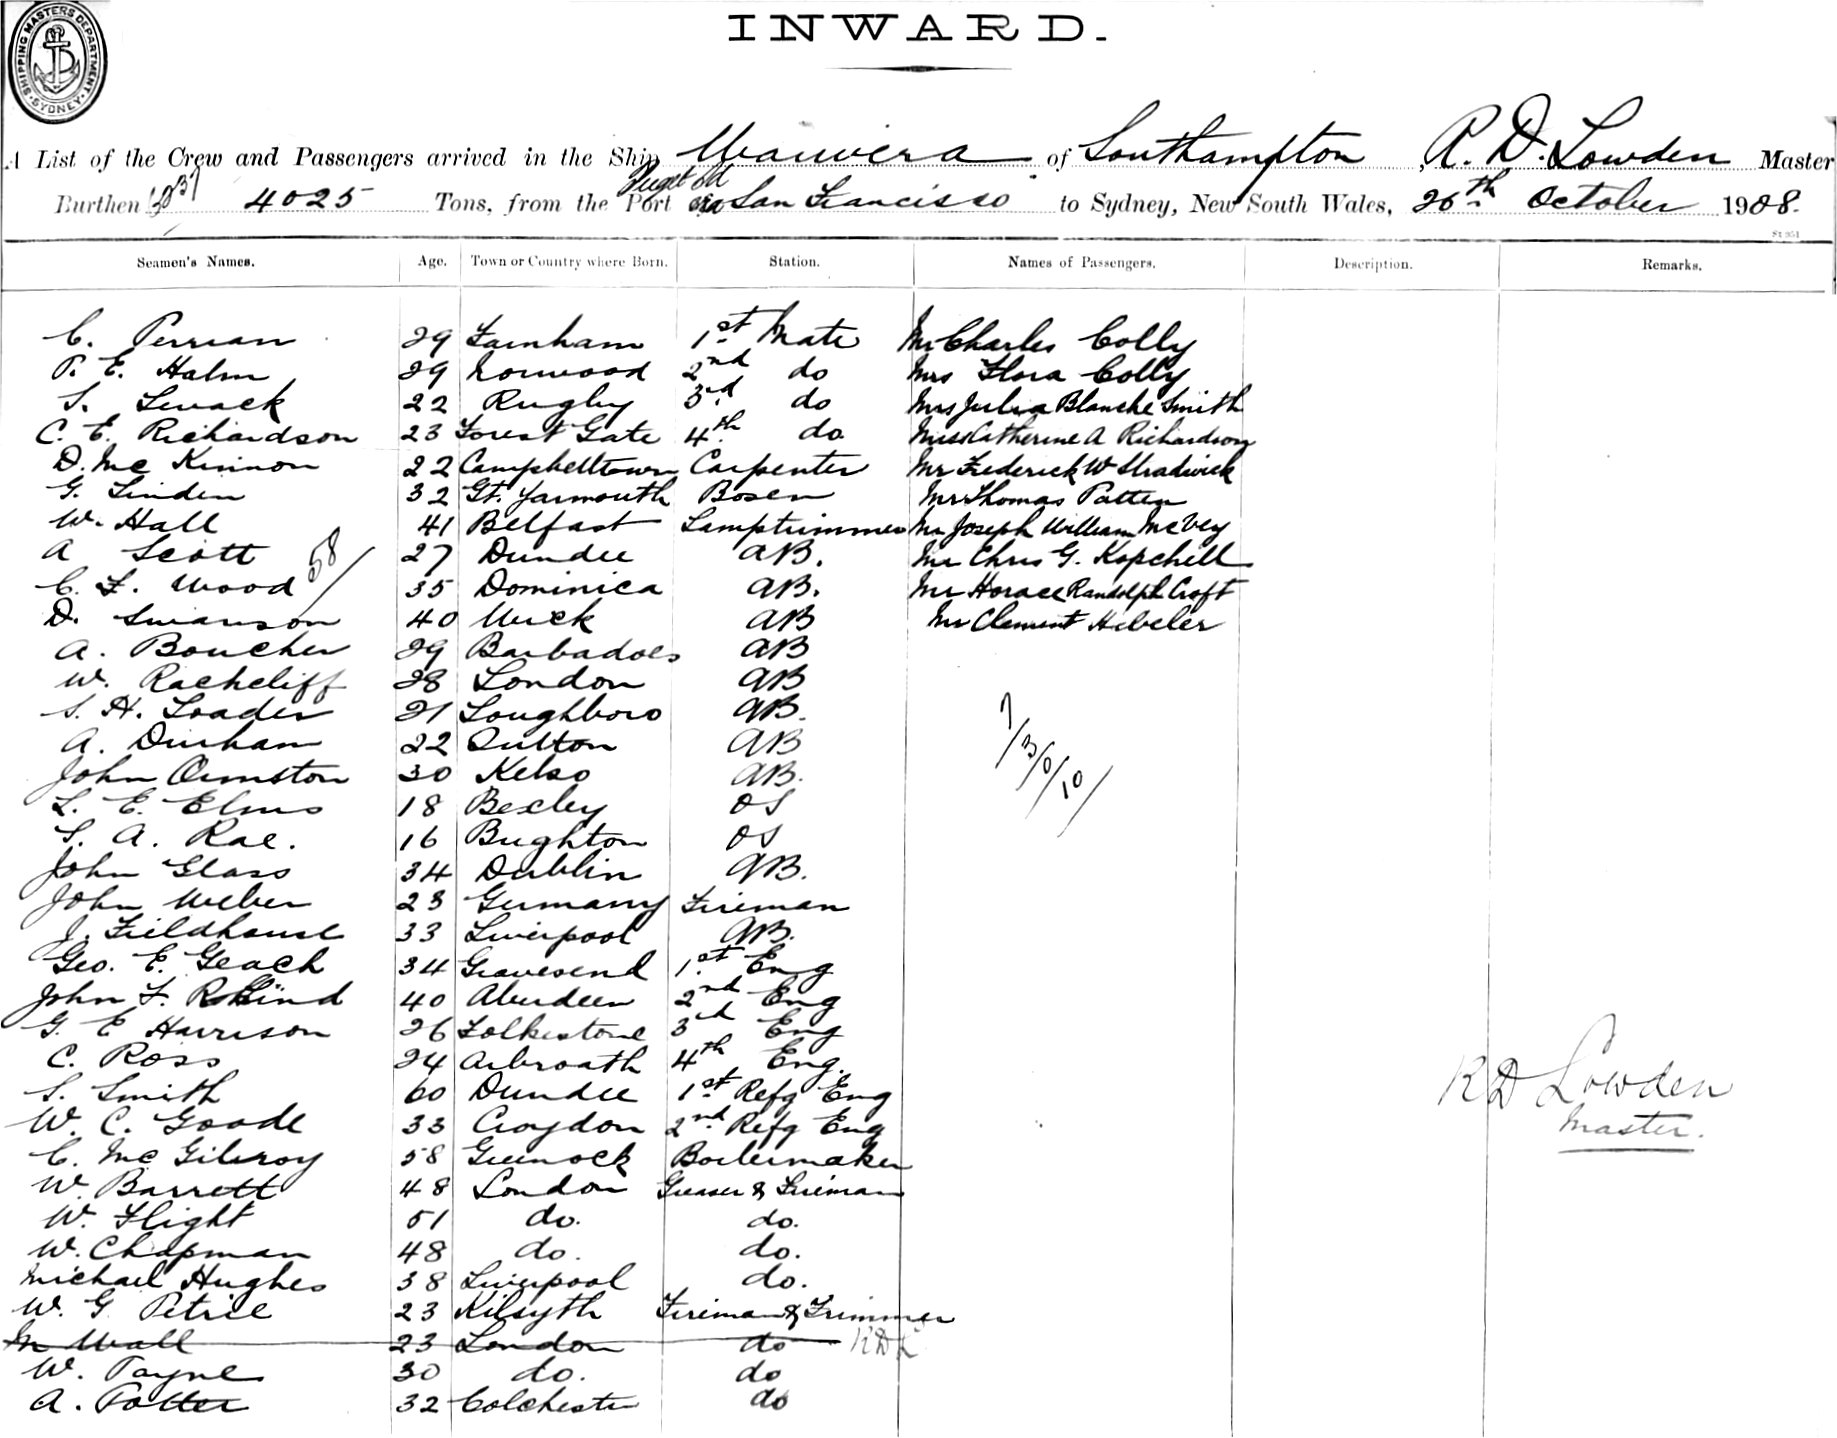 INWARD.
SHIPPING MASTERS DEPARTMENT SYDNEY
A List of the Crew and Passengers arrived in the Ship Waiwera of Southampton, R. D. Lowden Master
Burthen 4025 Tons, from the Port Puget Sd via San Francisco to Sydney, New South Wales, 26th October 1908.
Seamen's Names. Age. Town or Country where Born. Station. Names of Passengers. Description. Remarks.
C. Perrian 29 Farnham 1st Mate Mr Charles Colly
P. E. Halm 29 Norwood 2nd do Mrs Flora Colly
S. 22 Rugby 3rd do Mrs Julia Blanche Smith
C. E. Richardson 23 Forest Gate 4th do Miss Catherine A Richardson
D. Mc Kinnon 22 Campbelltown Carpenter Mr Frederick W Stradwick
G. Linden 32 Gt. Yarmouth Bosen Mr Thomas Patten
W. Hall 41 Belfast Lamptrimmer Mr Joseph William McVey
A Scott 27 Dundee AB. Mr Chris G. Kopchell
58/
C. F. Wood 35 Dominica AB. Mr Horace Randolph Croft
D. Swanson 40 Wick AB Mr Clement Hibeler
A. Boucher 29 Barbadoes AB
W. Rachcliff 28 London AB
S. H. Loader 21 Loughboro AB.
A. Durham 22 Sutton AB
7/3/0/10/
John Ormston 30 Kelso AB.
L. E. Elms 18 Bexley OS
S. A. Rae. 16 Brighton OS
John Glass 34 Dublin AB.
John Weber 23 Germany Fireman
J. Fieldhouse 33 Liverpool AB.
Geo. E. Geach 34 Gravesend 1st Eng
John F. 40 Aberdeen 2nd Eng
G. E Harrison 26 Folkestone 3rd Eng
C. Ross 24 Arbroath 4th Eng.
S. Smith 60 Dundee 1st Refg Eng
R D Lowden
Master.
W. C. Goode 33 Croydon 2nd Refg Eng
C. Mc Gilvroy 58 Greenock Boilermaker
W. Barrett 48 London Greaser & Fireman
W. Flight 51 do. do.
W. Chapman 48 do. do.
Michael Hughes 38 Liverpool do.
W. G Petrie 23 Kilsyth Fireman & Trimmer
M Wall 23 London do RDL
W. Payne 30 do. do
A. Potter 32 Colchester do